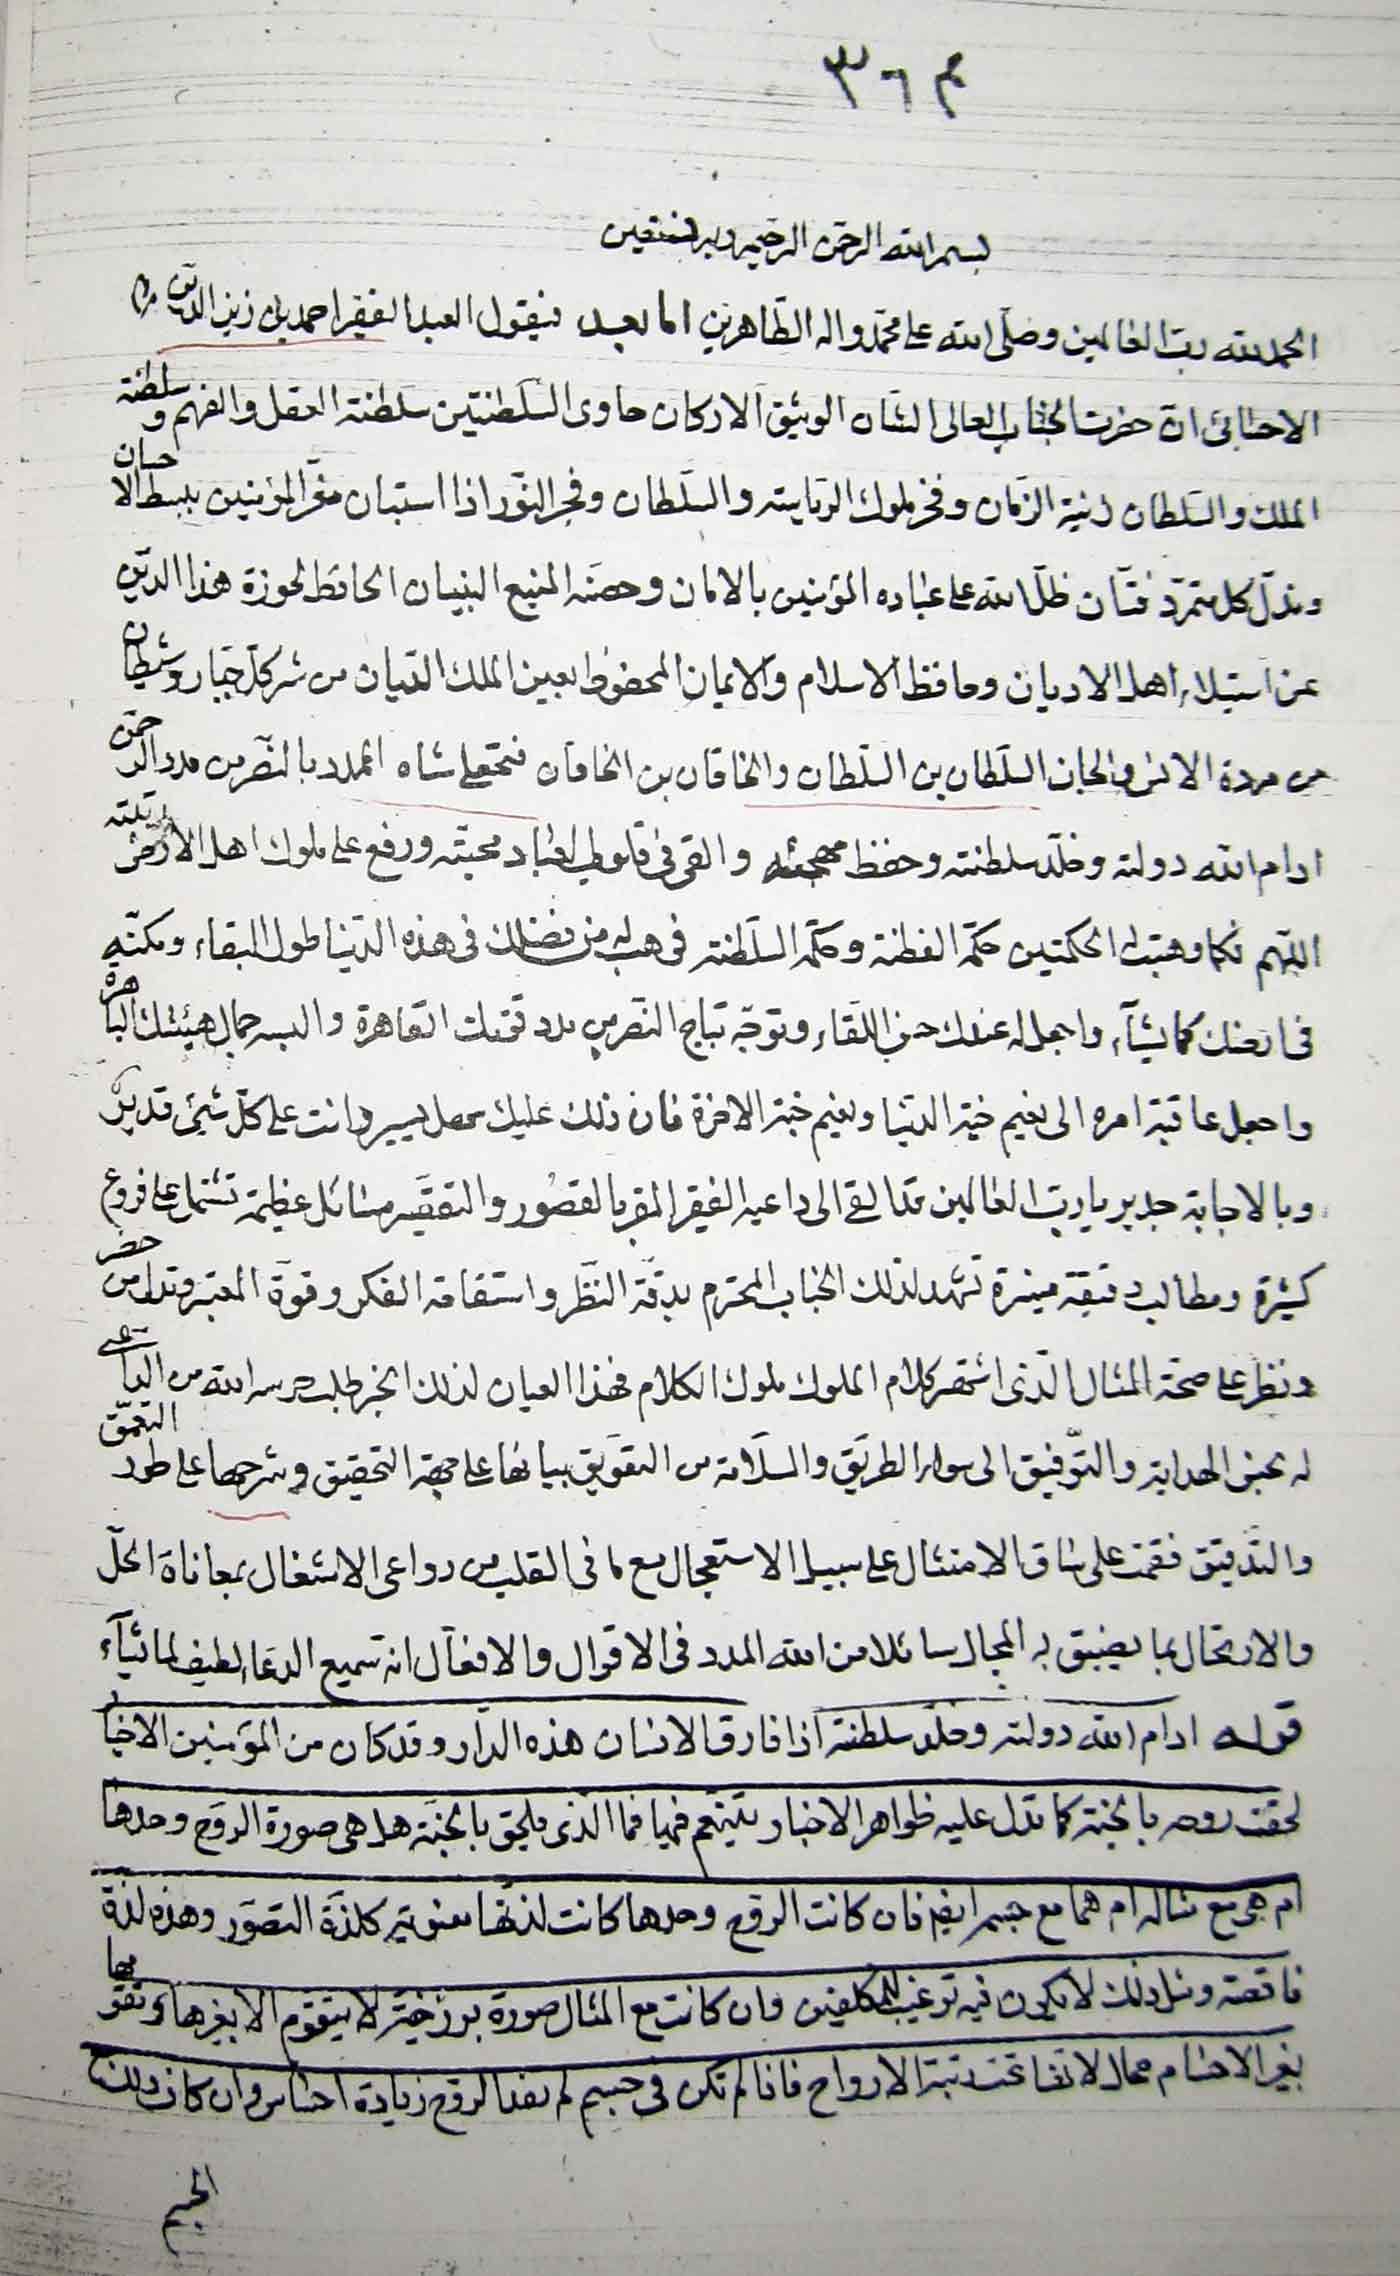 م ٣٦
بسم الله الرحمن الرحيم وبه نستعين
الحمد لله رب العالمين وصلى الله على محمد واله الطاهرين اما بعد فيقول العبد الفقير احمد بن زين الدين
الاحسائى ان حضرت الجناب العالى الشان الوثيق الاركان حاوى السلطنتين سلطنة العقل والفهم و سلطنة
الملك والسلطان زينة الزمان وفخر ملوك الرياسة والسلطان وفجر النور اذا استبان مقر المؤمنين ببسط الاحسان
ومذل كل متمرد فتان ظل الله على عباده المؤمنين بالامان وحصنه المنيع البنيان الحافظ لحوزة هذا الدين
عن استيلاء اهل الاديان وحافظ الاسلام والايمان المحفوظ بعين الملك الديان من شر كل جبار وشيطان
من مردة الانس والجان السلطان بن السلطان والخاقان بن الخاقان فتحعلى شاه الممدد بالنصر من مدد الرحمن
ادام الله دولته وخلد سلطنته وحفظ مهجته والقى فى قلوب العباد محبته ورفع على ملوك اهل الارض رتبته
اللهم فكما وهبت له الحكمتين حكمة الفطنة وحكمة السلطنة فهب له من فضلك فى هذه الدنيا طول البقاء ومكنه
فى ارضك كما يشآء واجعل له عندك حسن اللقاء وتوجه بتاج النصر من مدد قوتك القاهرة والبسه جمال هيئتك الباهرة
واجعل عاقبة امره الى نعيم جنة الدنيا ونعيم جنة الاخرة فان ذلك عليك سهل يسير وانت على كل شئ قدير
وبالاجابة جدير يا رب العالمين قد القى الى داعيه الفقير المقر بالقصور والتقصير مسائل عظيمة تشتمل على فروع
كثيرة ومطالب دقيقة منيرة تشهد لذلك الجناب المحترم بدقة النظر واستقامة الفكر وقوة المعتبر وتدل من حضر
ونظر على صحة المثال الذى اشتهر كلام الملوك ملوك الكلام فهذا العيان لذلك الخبر طلب حرسه الله من الداعى
له بحسن الهداية والتوفيق الى سواء الطريق والسلامة من التعويق بيانها على جهة التحقيق وشرحها على طور التعمق
والتدقيق فقمت على ساق الامتثال على سبيل الاستعجال مع ما فى القلب من دواعى الاشتغال بمعاناة الحل
والارتحال بما يضيق به المجال سائلا من الله المدد فى الاقوال والافعال انه سميع الدعاء لطيف لما يشآء
قوله ادام الله دولته وخلد سلطنته اذا فارق الانسان هذه الدار وقد كان من المؤمنين الاخيار
لحقت روحه بالجنة كما تدل عليه ظواهر الاخبار يتنعم فيها فما الذى يلحق بالجنة هل هى صورة الروح وحدها
ام هى مع مثاله ام هما مع جسم ايضا فان كانت الروح وحدها كانت لذتها معنوية كلذة التصور وهذه لذة
ناقصة ومثل ذلك لا يكون فيه ترغيب للمكلفين وان كانت مع المثال صورة برزخية لا يتقوم الا بغيرها وتقومها
بغير الاجسام محال لانحطاطه عن رتبة الارواح فاذا لم تكن فى جسم لم يفد الروح زيادة احساس وان كان ذلك
الجسم